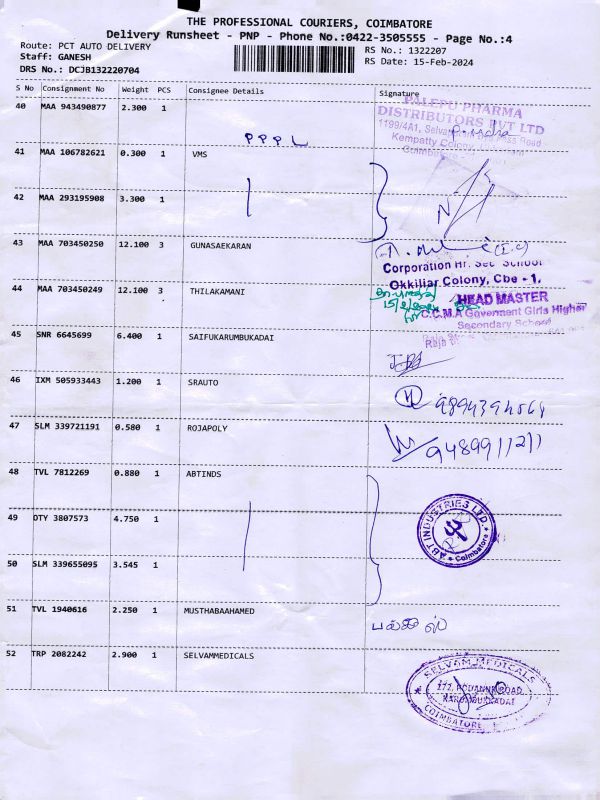 THE PROFESSIONAL COURIERS, COIMBATORE
Delivery Runsheet - PNP - Phone No.:0422-3505555 - Page No.:4
Route: PCT AUTO DELIVERY
RS No.: 1322207
Staff: GANESH
RS Date: 15-Feb-2024
DRS No.: DCJB132220704
S No Consignment No Weight PCS Consignee Details Signature
40 MAA 943490877 2.300 1
PPPL
PALEPU PHARMA
DISTRIBUTORS PVT LTD
Kempatty Colony
41 MAA 106782621 0.300 1 VMS
42 MAA 293195908 3.300 1
43 MAA 703450250 12.100 3 GUNASAEKARAN
Corporation Hr. Sec School
Okkiliar Colony, Cbe - 1.
44 MAA 703450249 12.100 3 THILAKAMANI
HEAD MASTER
C.C.M.A Government Girls Higher
Secondary School
45 SNR 6645699 6.400 1 SAIFUKARUMBUKADAI
46 IXM 505933443 1.200 1 SRAUTO
47 SLM 339721191 0.580 1 ROJAPOLY
9489911211
48 TVL 7812269 0.880 1 ABTINDS
49 DTY 3807573 4.750 1
ABT INDUSTRIES LTD.
Coimbatore
50 SLM 339655095 3.545 1
51 TVL 1940616 2.250 1 MUSTHABAAHAMED
52 TRP 2082242 2.900 1 SELVAMMEDICALS
SELVAM MEDICALS
ROAD
KARUMBUKKADAI
COIMBATORE